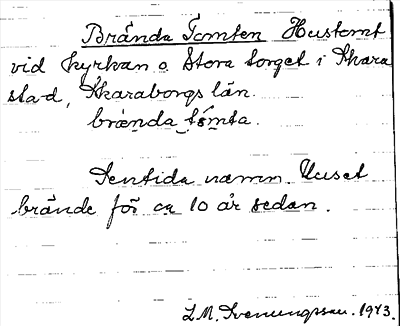 Brända Tomten Hustomt
vid kyrkan o. Stora torget i Skara
stad, Skaraborgs län.
brǝnda tǝmta.
Sentida namn. Huset
brände för ca 10 år sedan.
S.M. Svenungsson. 1973.